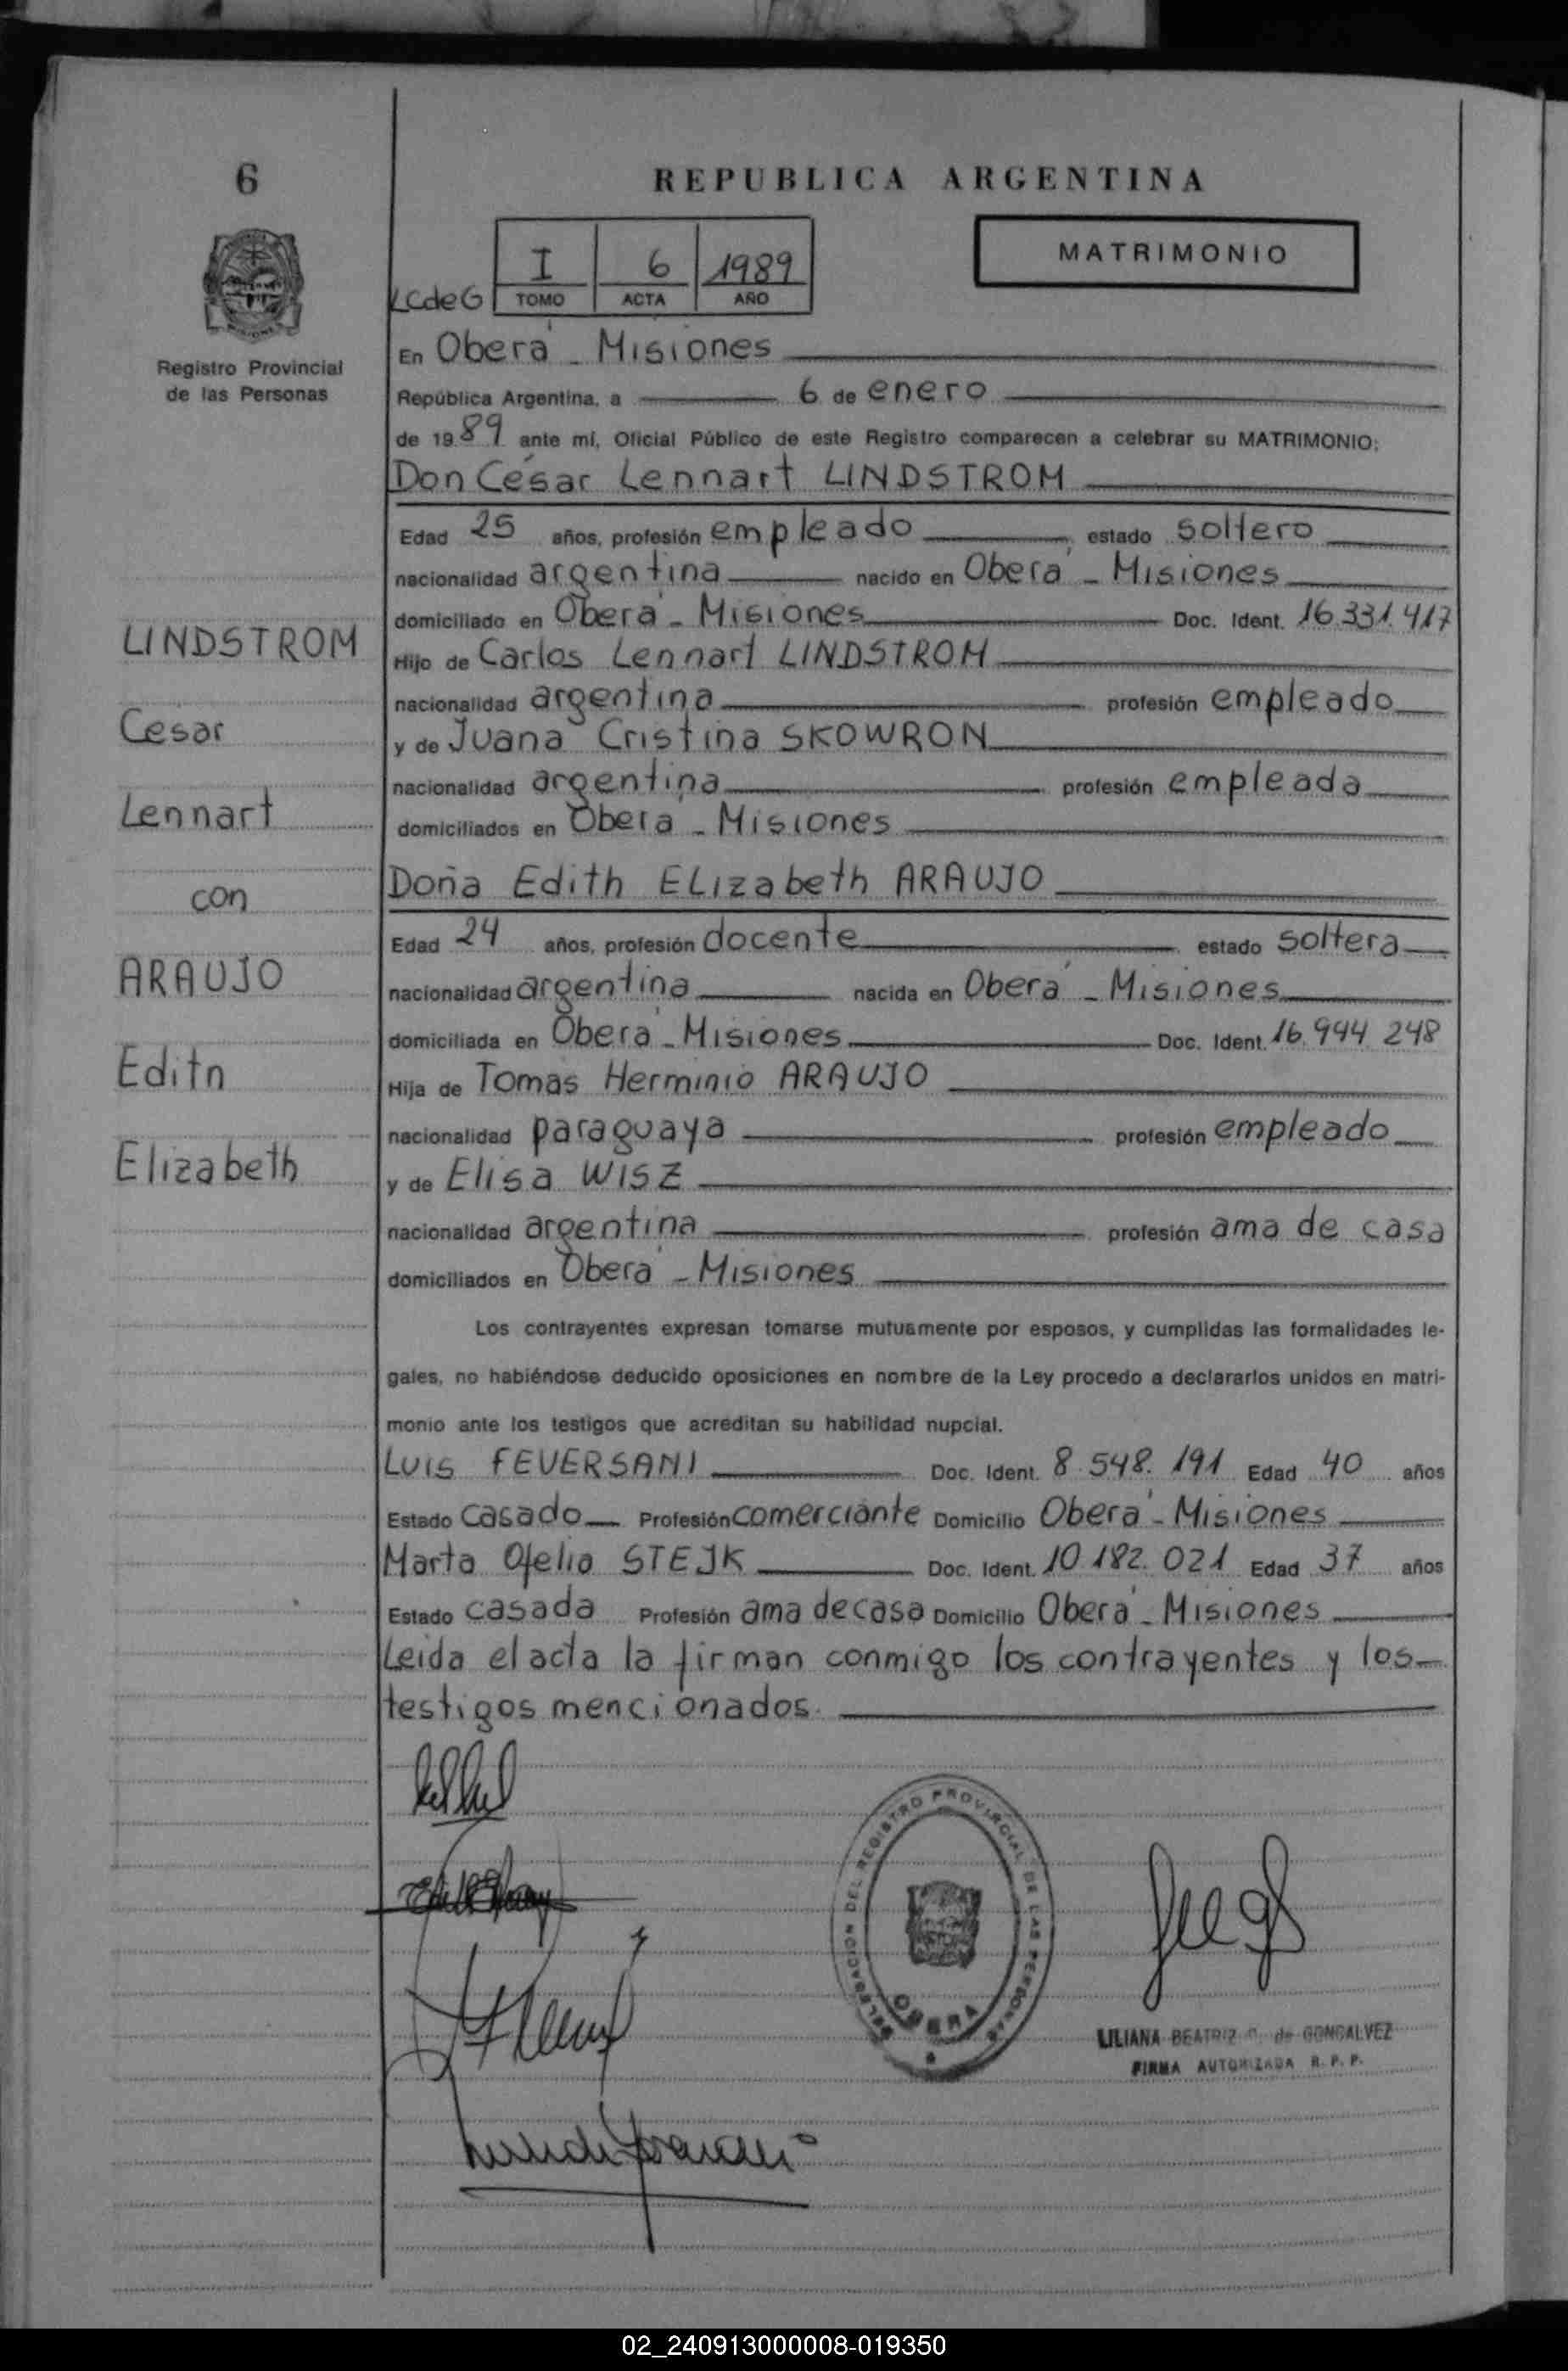 6
REPUBLICA ARGENTINA
MATRIMONIO
I 6 1989
LCdeG TOMO ACTA AÑO
Registro Provincial
de las Personas
En Oberá - Misiones
República Argentina, a 6 de enero
de 1989 ante mí, Oficial Público de este Registro comparecen a celebrar su MATRIMONIO;
Don César Lennart LINDSTROM
Edad 25 años, profesión empleado estado soltero
nacionalidad argentina nacido en Oberá - Misiones
domiciliado en Oberá - Misiones Doc. Ident. 16.331.417
Hijo de Carlos Lennart LINDSTROM
nacionalidad argentina profesión empleado
y de Juana Cristina SKOWRON
nacionalidad argentina profesión empleada
domiciliados en Oberá - Misiones
Doña Edith ELizabeth ARAUJO
Edad 24 años, profesión docente estado soltera
nacionalidad argentina nacida en Oberá - Misiones
domiciliada en Oberá - Misiones Doc. Ident. 16.944.248
Hija de Tomas Herminio ARAUJO
nacionalidad paraguaya profesión empleado
y de Elisa WISZ
nacionalidad argentina profesión ama de casa
domiciliados en Oberá - Misiones
LINDSTROM
Cesar
Lennart
con
ARAUJO
Edith
Elizabeth
Los contrayentes expresan tomarse mutuamente por esposos, y cumplidas las formalidades le-
gales, no habiéndose deducido oposiciones en nombre de la Ley procedo a declararlos unidos en matri-
monio ante los testigos que acreditan su habilidad nupcial.
Luis FEVERSANI Doc. Ident. 8.548.191 Edad 40 años
Estado casado Profesión comerciante Domicilio Oberá - Misiones
Marta Ofelia STEJK Doc. Ident. 10.182.021 Edad 37 años
Estado casada Profesión ama de casa Domicilio Oberá - Misiones
Leida el acta la firman conmigo los contrayentes y los
testigos mencionados.
DELEGACION DEL REGISTRO PROVINCIAL DE LAS PERSONAS
OBERA
LILIANA BEATRIZ C. de GONCALVEZ
FIRMA AUTORIZADA R. P. P.
02_240913000008-019350